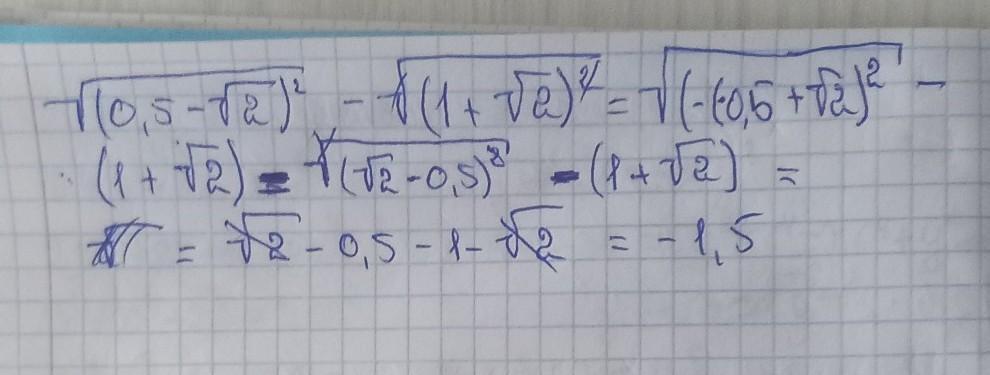 √(0,5-√2)² - √(1+√2)² = √(-(-0,5+√2)² -
(1+√2) = √(√2-0,5)² - (1+√2) =
= √2 - 0,5 - 1 - √2 = -1,5